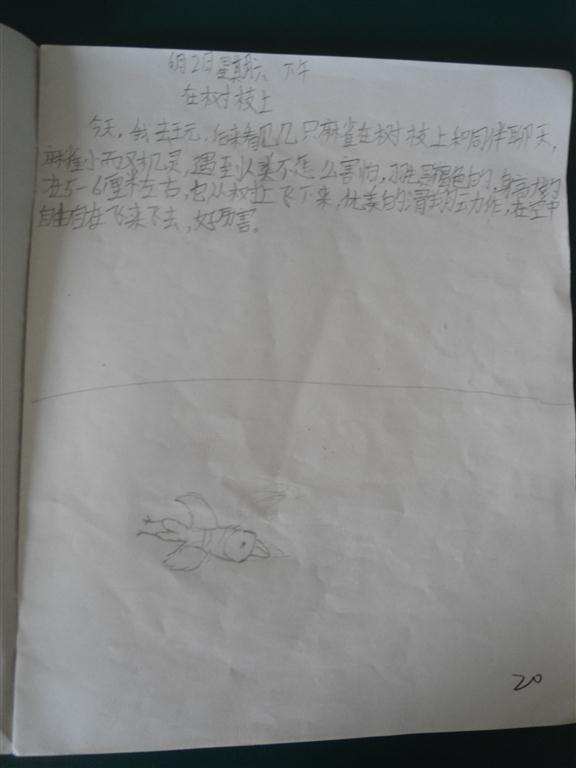 6月2日星期六 下午
在树枝上
今天，我去玩，后来看见几只麻雀在树枝上和同伴聊天，
麻雀小而又机灵，遇到人类不怎么害怕，羽毛是褐色的，身高大约
在5-6厘米左右，它从树枝上飞下来，优美的滑翔动作，在空中
自由自在飞来飞去，好厉害。
20